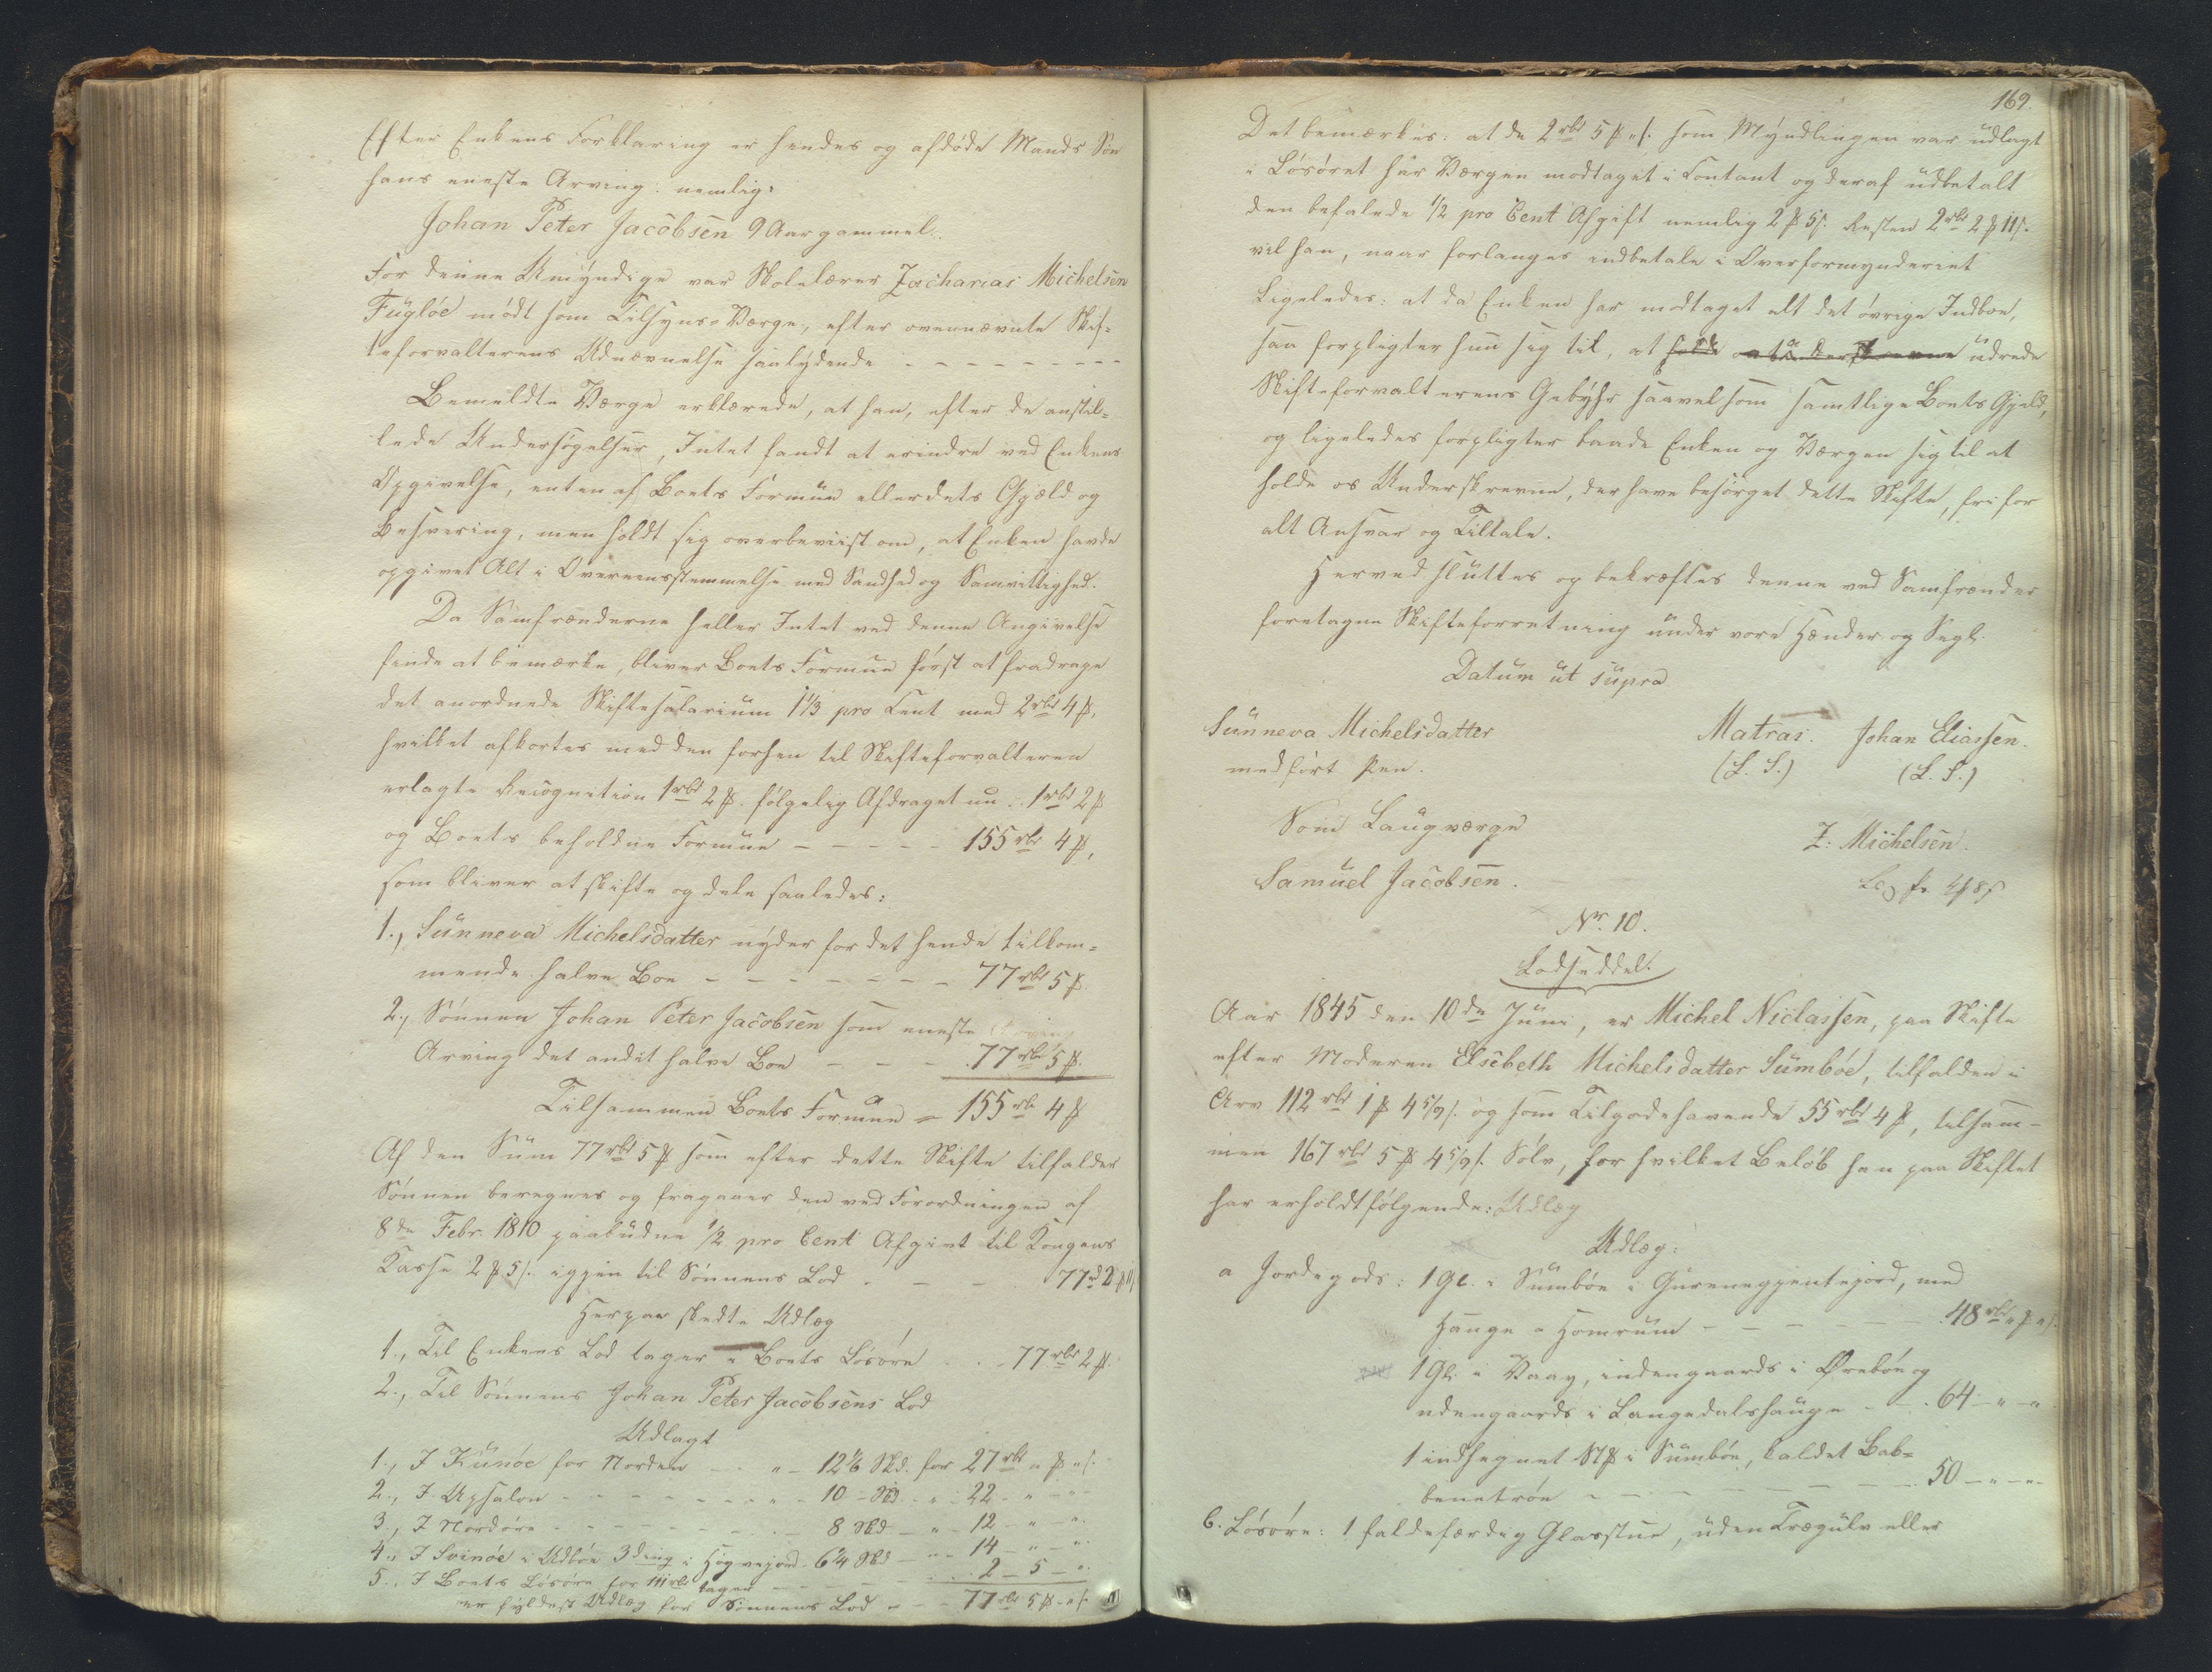 Efter Enkens Forklaring er hendes og afdøde Mands Søn
hans eneste Arving: nemlig:
Johan Peter Jacobsen 9 Aar gammel.
For denne Umyndige var Skolelærer Zacharias Michelsen
Fugløe mødt som Tilsyns-Værge, efter ovennævnte Skif-
teforvalterens Udnævnelse saalydende - - - - - - - -
Bemeldte Værge erklærede, at han, efter de anstil-
lede Undersøgelser, Intet fandt at erindre ved Enkens
Opgivelse, enten af Boets Formue eller dets Gjæld og
Besværing, men holdt sig overbeviist om, at Enken havde
opgivet Alt i Overeensstemmelse med Sandhed og Samvittighed.
Da Samfrænderne heller Intet ved denne Angivelse
finde at bemærke, bliver Boets Formue først at fradrage
det anordnede Skiftesalarium 1 1/3 pro Cent med 2 rbd 4 ß,
hvilket afkortes med den forhen til Skifteforvalteren
erlagte Recognition 1 rbd 2 ß. følgelig Afdraget nu . . 1 rbd 2 ß
og Boets beholdne Formue - - - - - 155 rbd 4 ß,
som bliver at skifte og dele saaledes:
1., Sunneva Michelsdatter nyder for det hende tilkom-
mende halve Boe - - - - - - - - 77 rbd 5 ß.
2., Sønnen Johan Peter Jacobsen som eneste
Arving det andet halve Boe - - - - 77 rbd 5 ß.
Tilsammen Boets Formue - 155 rbd 4 ß
Af den Sum 77 rbd 5 ß som efter dette Skifte tilfalder
Sønnen beregnes og fragaaer den ved Forordningen af
8de Febr. 1810 paabudne 1/2 pro Cent Afgivt til Kongens
Kasse 2 ß 5 s. igjen til Sønnens Lod - - - 77 rd 2 ß 11 s.
Herpaa skedte Udlæg
1., Til Enkens Lod tages i Boets Løsøre . . 77 rbd 2 ß.
2., Til Sønnens Johan Peter Jacobsens Lod
Udlagt
1., I Kunøe for Norden - - " - 12 1/6 Skd. for 27 rbd " ß " s.
2., I Upsalen - - - - - - - " - 10 - Skd. - " - 22 - " - "
3., I Nordøre - - - - - - - - 8 Skd - " - 12 - " - "
4., I Svinøe i Udbøe 3ding i Høgvejord 6 1/4 Skd - " - 14 - " - "
5., I Boets Løsøre for rbd tages - - - - - - 2 - 5 - "
er fyldest Udlæg for Sønnens Lod - - - 77 rbd 5 ß - " s.
169.
Det bemærkes: at de 2 rbd 5 ß " s. som Myndlingen var udlagt
i Løsøret har Værgen modtaget i Contant og deraf udbetalt
den befalede 1/2 pro Cent Afgift nemlig 2 ß 5 s. Resten 2 rbd 2 ß 11 s.
vil han, naar forlanges indbetale i Overformynderiet
Ligeledes: at da Enken har modtaget alt det øvrige Indboe,
saa forpligter hun sig til, at holde os Underskrevne udrede
Skifteforvalterens Gebyhr saavelsom samtlige Boets Gjeld,
og ligeledes forpligter baade Enken og Værgen sig til at
holde os Underskrevne, der have besørget dette Skifte, fri for
alt Ansvar og Tiltale.
Herved sluttes og bekræftes denne ved Samfrænder
foretagne Skifteforretning under vore Hænder og Segl.
Datum ut supra
Sunneva Michelsdatter Matras. Johan Eliassen.
medført Pen. (L. S.) (L. S.)
Som Laugværge
Z: Michelsen.
Samuel Jacobsen.
4 ß 8 s
Nr. 10.
Lodseddel.
Aar 1845 den 10de Juni, er Michel Niclassen, paa Skifte
efter Moderen Elsebeth Michelsdatter Sumbøe, tilfalden i
Arv 112 rbd 1 ß 4 5/9 s. og som Tilgodehavende 55 rbd 4 ß, tilsam-
men 167 rbd 5 ß 4 5/9 s. Sølv, for hvilket Beløb han paa Skiftet
har erholdt følgende: Udlæg
Udlæg:
a Jordegods: 1 Gl. i Sumbøe i Gureneggentejord, med
Hauge a Homrum - - - - - - 48 rbd " ß " s.
1 Gl. a Vaag, indengaards i Ørebøe og
udengaards i Langedalshauge - - . 64 - " - "
1 indhegnet Stk i Sumbøe, kaldet Bab-
benetrøe - - - - - - - - - 50 - " - "
b. Løsøre: 1 faldefærdig Glasstue, uden Trægulv eller